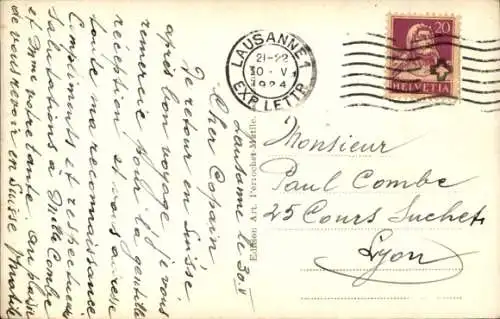 LAUSANNE 1
21-22
30-V
1924
EXP. LETTR.
20
HELVETIA
Monsieur
Paul Combe
25 Cours Suchet
Lyon
Edition Art. Perrochet-Matile.
Lausanne le 30.V
Cher Copain
De retour en Suisse
après bon voyage, je vous
remercie pour la gentille
réception et vous adresse
toute ma reconnaissance
Compliments et respectueuses
Salutations à Mlle Combe
et Mme votre tante. Au plaisir
de vous revoir en Suisse